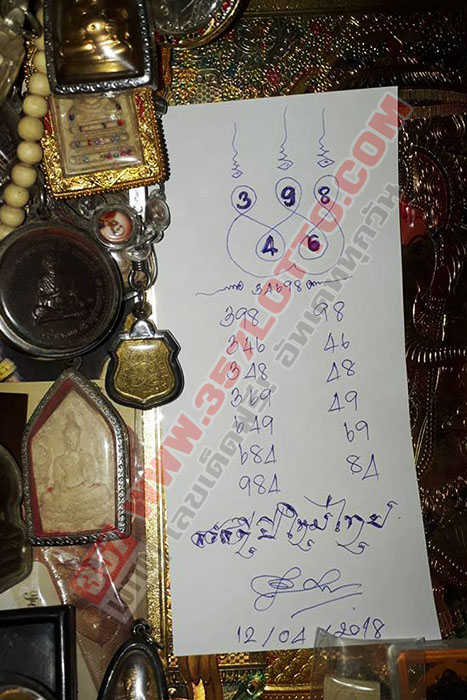 3 9 8
4 6
34698
398 98
346 46
348 48
369 49
649 69
684 84
984
สวัสดีปีใหม่ไทย
12/04/2018
WWW.357LOTTO.COM
เลขเด็ดฟรี อัพเดททุกวัน